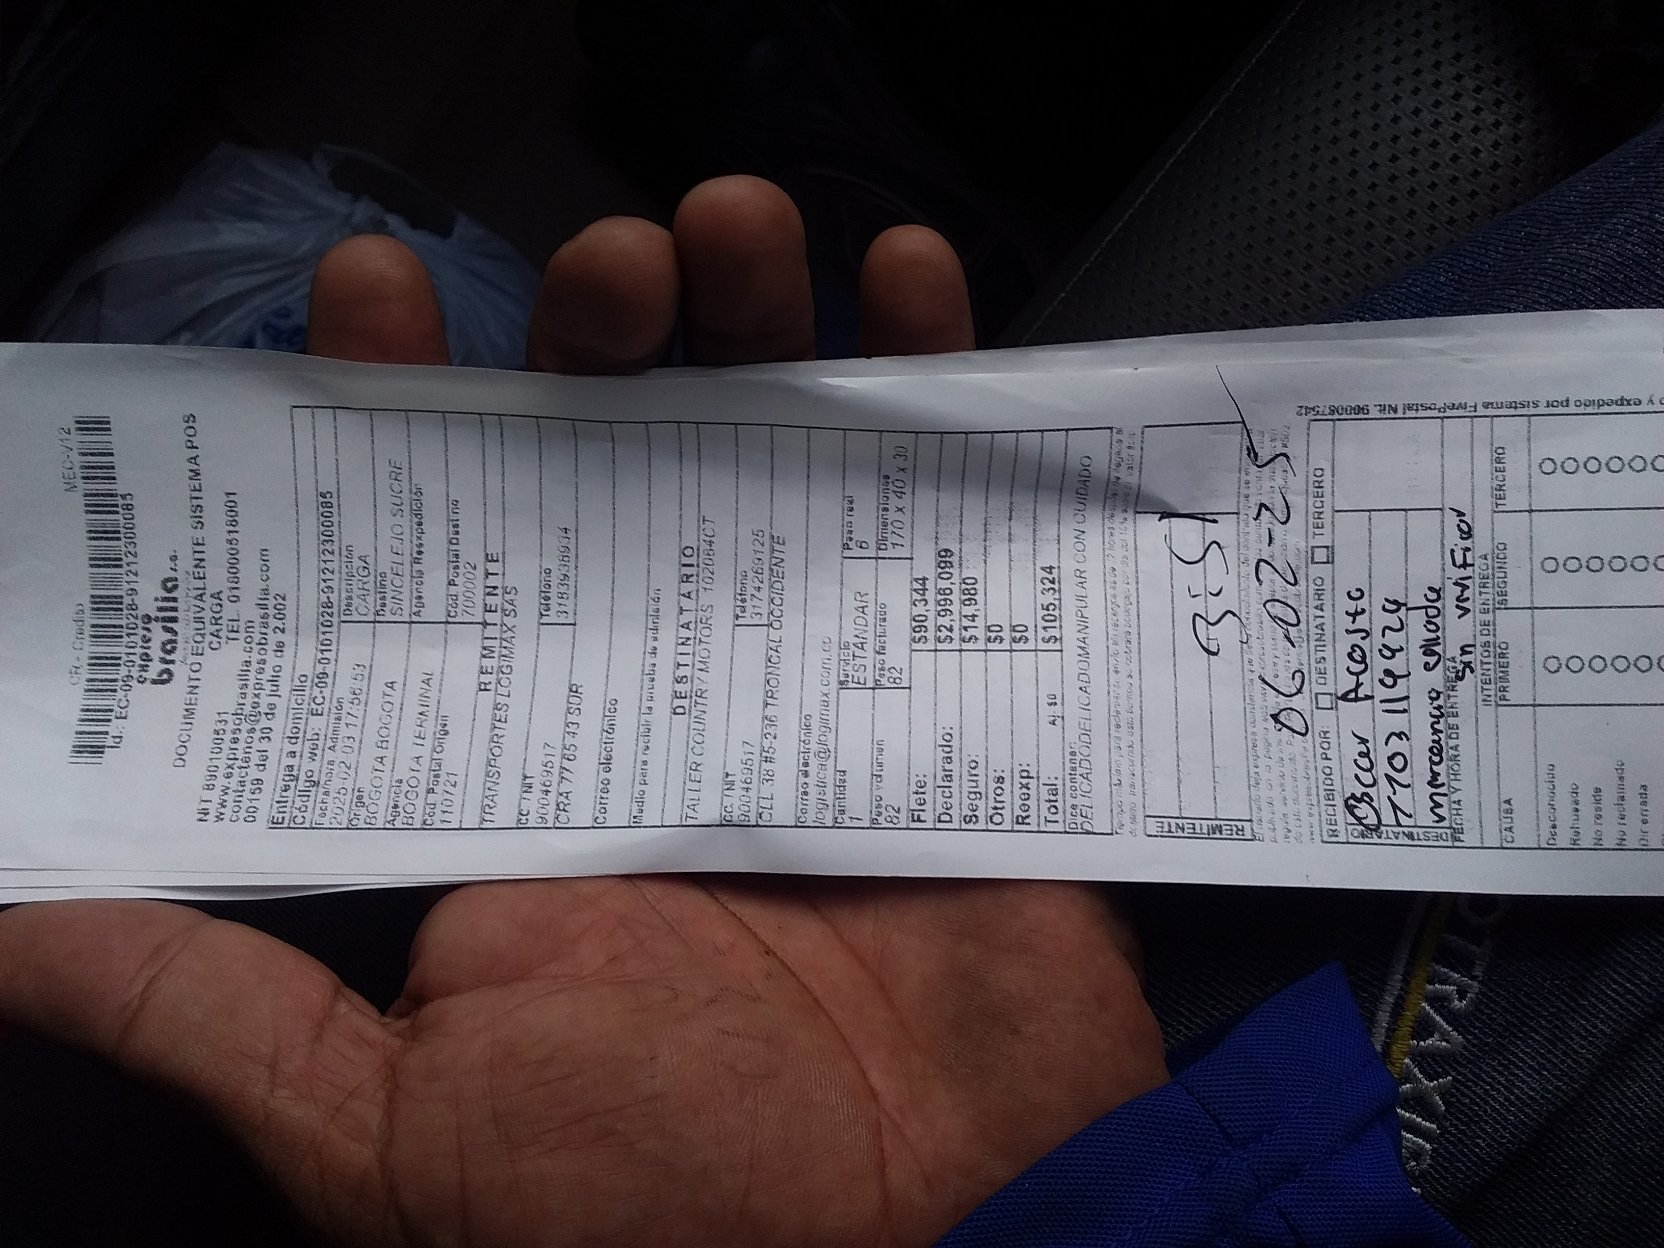 CR - Credito MEC-V12
Id.: EC-09-0101028-91212300085
expreso
brasilia s.a.
DOCUMENTO EQUIVALENTE SISTEMA POS
CARGA
NIT 890100531 TEL. 018000518001
www.expresobrasilia.com
contactenos@expresobrasilia.com
00159 del 30 de julio de 2.002
Entrega a domicilio
Código web: EC-09-0101028-91212300085
Fecha/hora Admisión Descripción
2025-02-03 17:56:53 CARGA
Origen Destino
BOGOTA BOGOTA SINCELEJO SUCRE
Agencia Agencia Reexpedición
BOGOTA TERMINAL
Cód. Postal Origen Cód. Postal Destino
110721 700002
REMITENTE
TRANSPORTES LOGIMAX SAS
CC / NIT Teléfono
900469517 3183938934
CRA 77 65 43 SUR
Correo electrónico
Medio para recibir la prueba de admisión
DESTINATARIO
TALLER COUNTRY MOTORS 102084CT
CC. NIT Teléfono
900469517 3174269125
CLL 38 #5-236 TRONCAL OCCIDENTE
Correo electrónico
logistica@logimax.com.co
Cantidad Servicio Peso real
1 ESTANDAR 6
Peso volumen Peso facturado Dimensiones
82 82 170 x 40 x 30
Flete: $90,344
Declarado: $2,996,099
Seguro: $14,980
Otros: $0
Reexp: $0
Total: Aj. $0 $105,324
Dice contener:
DELICADODELICADOMANIPULAR CON CUIDADO
REMITENTE
3:51
06-02-25
RECIBIDO POR: DESTINATARIO TERCERO
Oscar Acosta
77031199 24
mercancia sellada
sin verificar
FECHA Y HORA DE ENTREGA
INTENTOS DE ENTREGA
CAUSA PRIMERO SEGUNDO TERCERO
Desconocido
Rehusado
No reside
No reclamado
Dir. errada
y expedido por sistema FivePostal Nit. 900087542